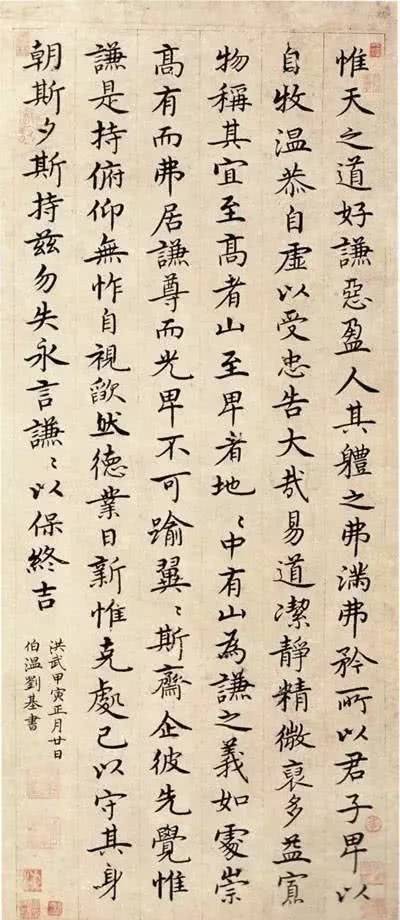 惟天之道好謙惡盈人其軆之弗滿弗矜所以君子卑以
自牧温恭自虚以受忠告大哉易道潔靜精微裒多益寡
物稱其宜至髙者山至卑者地〻中有山為謙之義如處崇
髙有而弗居謙尊而光卑不可踰翼〻斯齋企彼先覺惟
謙是持俯仰無怍自視歉然德業日新惟克處己以守其身
朝斯夕斯持兹勿失永言謙〻以保終吉
洪武甲寅正月廿日
伯温劉基書